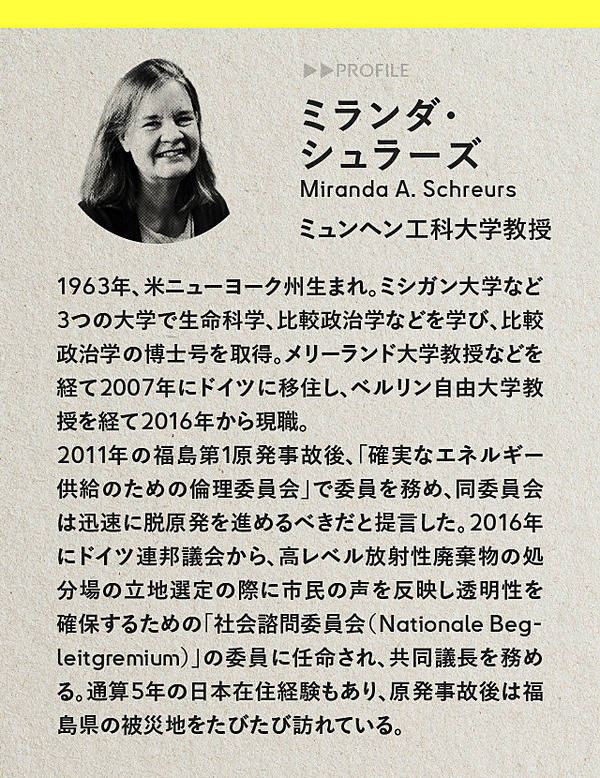 ▶▶PROFILE
ミランダ・
シュラーズ
Miranda A. Schreurs
ミュンヘン工科大学教授
1963年、米ニューヨーク州生まれ。ミシガン大学など
3つの大学で生命科学、比較政治学などを学び、比較
政治学の博士号を取得。メリーランド大学教授などを
経て2007年にドイツに移住し、ベルリン自由大学教
授を経て2016年から現職。
2011年の福島第1原発事故後、「確実なエネルギー
供給のための倫理委員会」で委員を務め、同委員会
は迅速に脱原発を進めるべきだと提言した。2016年
にドイツ連邦議会から、高レベル放射性廃棄物の処
分場の立地選定の際に市民の声を反映し透明性を
確保するための「社会諮問委員会（Nationale Beg-
leitgremium）」の委員に任命され、共同議長を務め
る。通算5年の日本在住経験もあり、原発事故後は福
島県の被災地をたびたび訪れている。